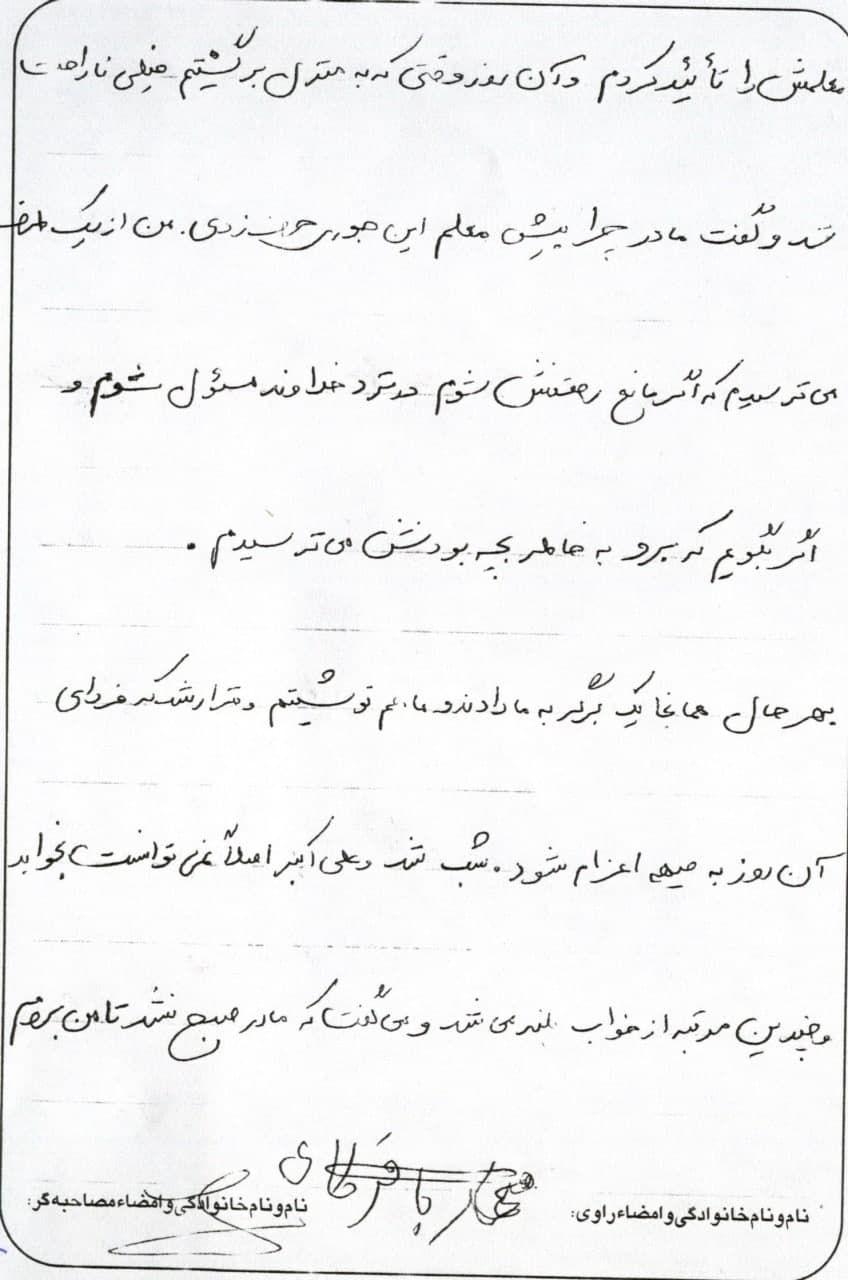 معلمش را تأئید کردم و آن روز وقتی که به منزل برگشتیم خیلی ناراحت
شد و گفت مادر چرا پیش معلم این جوری حرف زدی. من از یک طرف
می ترسیدم که اگر مانع رفتنش شوم در نزد خداوند مسئول شوم و
اگر بگویم که برو به خاطر بچه بودنش می ترسیدم .
بهر حال همانجا یک برگه به ما دادند و ما هم نوشتیم و قرار شد که فردای
آن روز به جبهه اعزام شود. شب شد و علی اکبر اصلاً نمی توانست بخوابد
و چندین مرتبه از خواب بلند می شد و می گفت که مادر صبح نشد تا من بروم
نام و نام خانوادگی و امضاء راوی:
نام و نام خانوادگی و امضاء مصاحبه گر: